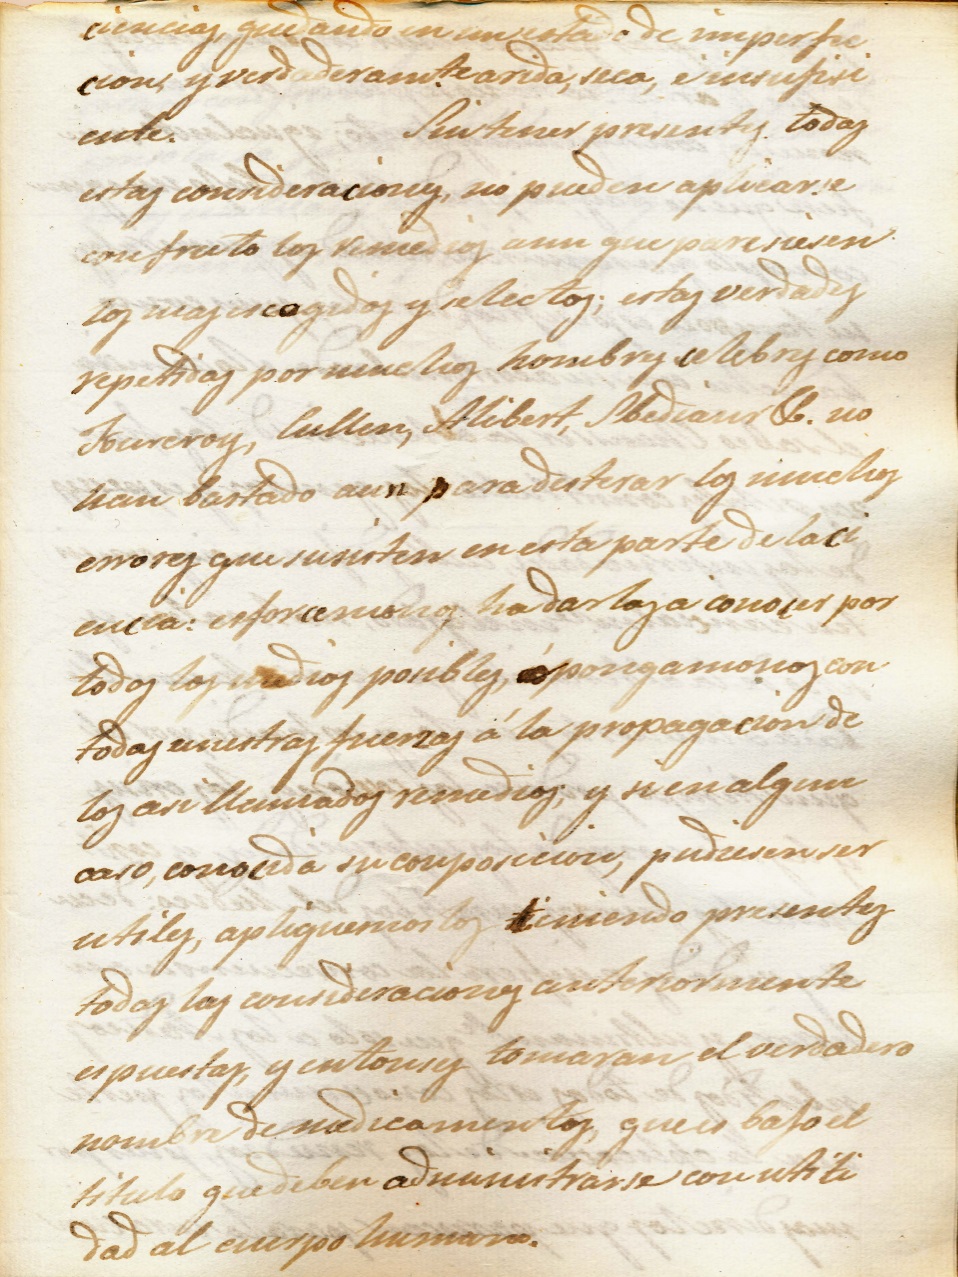 ciencias, quedando en un estado de imperfec
cion, y verdaderamte arida, seca, é insufisi
ente. Sin tener presentes todas
estas consideraciones, no pueden aplicarse
con fruto los remedios aun que paresiesen
los mas escogidos y selectos; estas verdades
repetidas por muchos hombres celebres como
Fourcroy, Cullen, Alibert, Swediaur &. no
han bastado aun para desterar los muchos
errores que sunsten en esta parte de la ci
encia: esforcemonos ha darlas a conoser por
todos los medios posibles, opongamonos con
todas nuestras fuerzas á la propagacion de
los asi llamados remedios; y si en algun
caso, conocida su composicion, pudiesen ser
utiles, apliquemoslos teniendo presentes
todas las consideraciones anteriormente
espuestas, y entonses tomaran el verdadero
nombre de medicamentos, que es bajo el
titulo que deben administrarse con utili
dad al cuerpo humano.